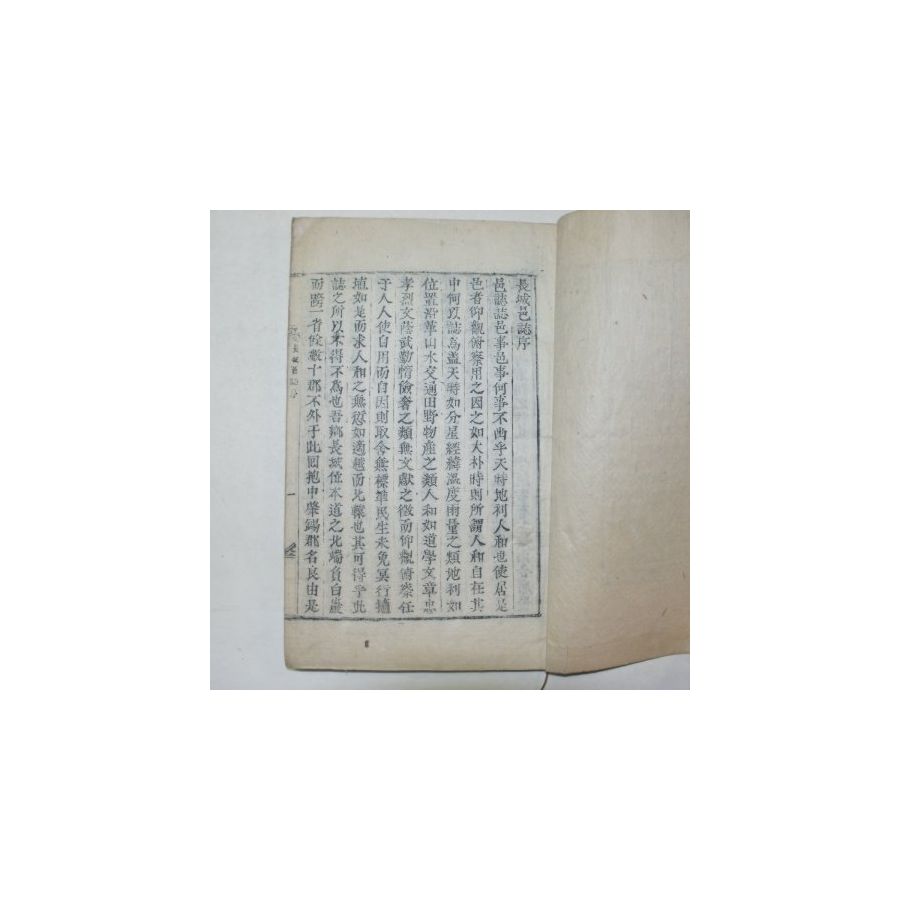 長城邑誌序
邑誌誌邑事邑事何事不西乎天時地利人和也使居是
邑者仰觀俯察用之因之如大朴時則所謂人和自在其
中何以誌爲盖天時如分星經緯溫度雨量之類地利如
位置沿革山水交通田野物產之類人和如道學文章忠
孝烈文蔭武勤惰儉奢之類無文獻之徵而仰觀俯察任
于人人使自用而自因則取舍無標準民生未免冥行擿
埴如是而求人和之無愆如適越而北轅也其可得乎此
誌之所以不得不爲也吾鄕長城位本道之北端負白巖
而跨一省餘數十郡不外于此回抱中肇錫郡名良由是